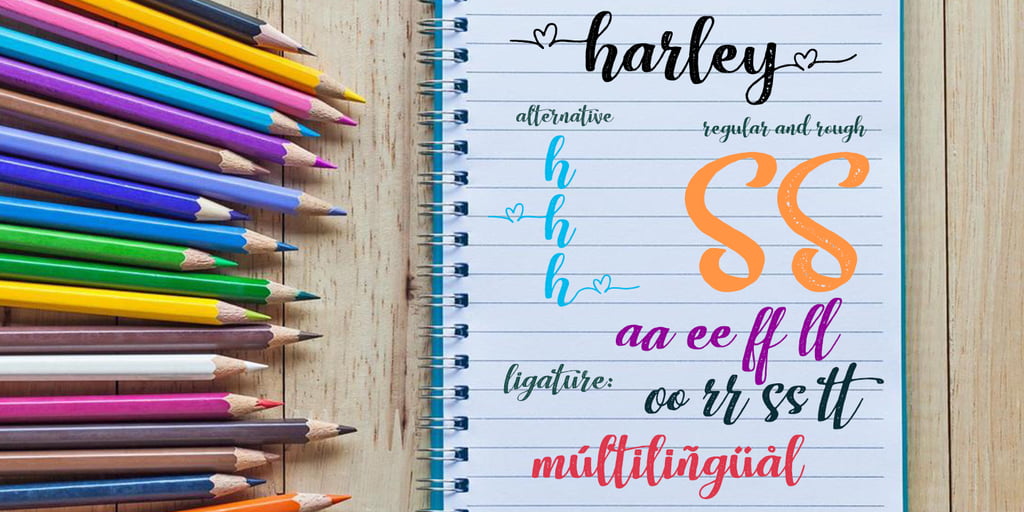 harley
alternative
regular and rough
h
h
h
SS
aa ee ff ll
ligature:
oo rr ss tt
múltiliñgüål